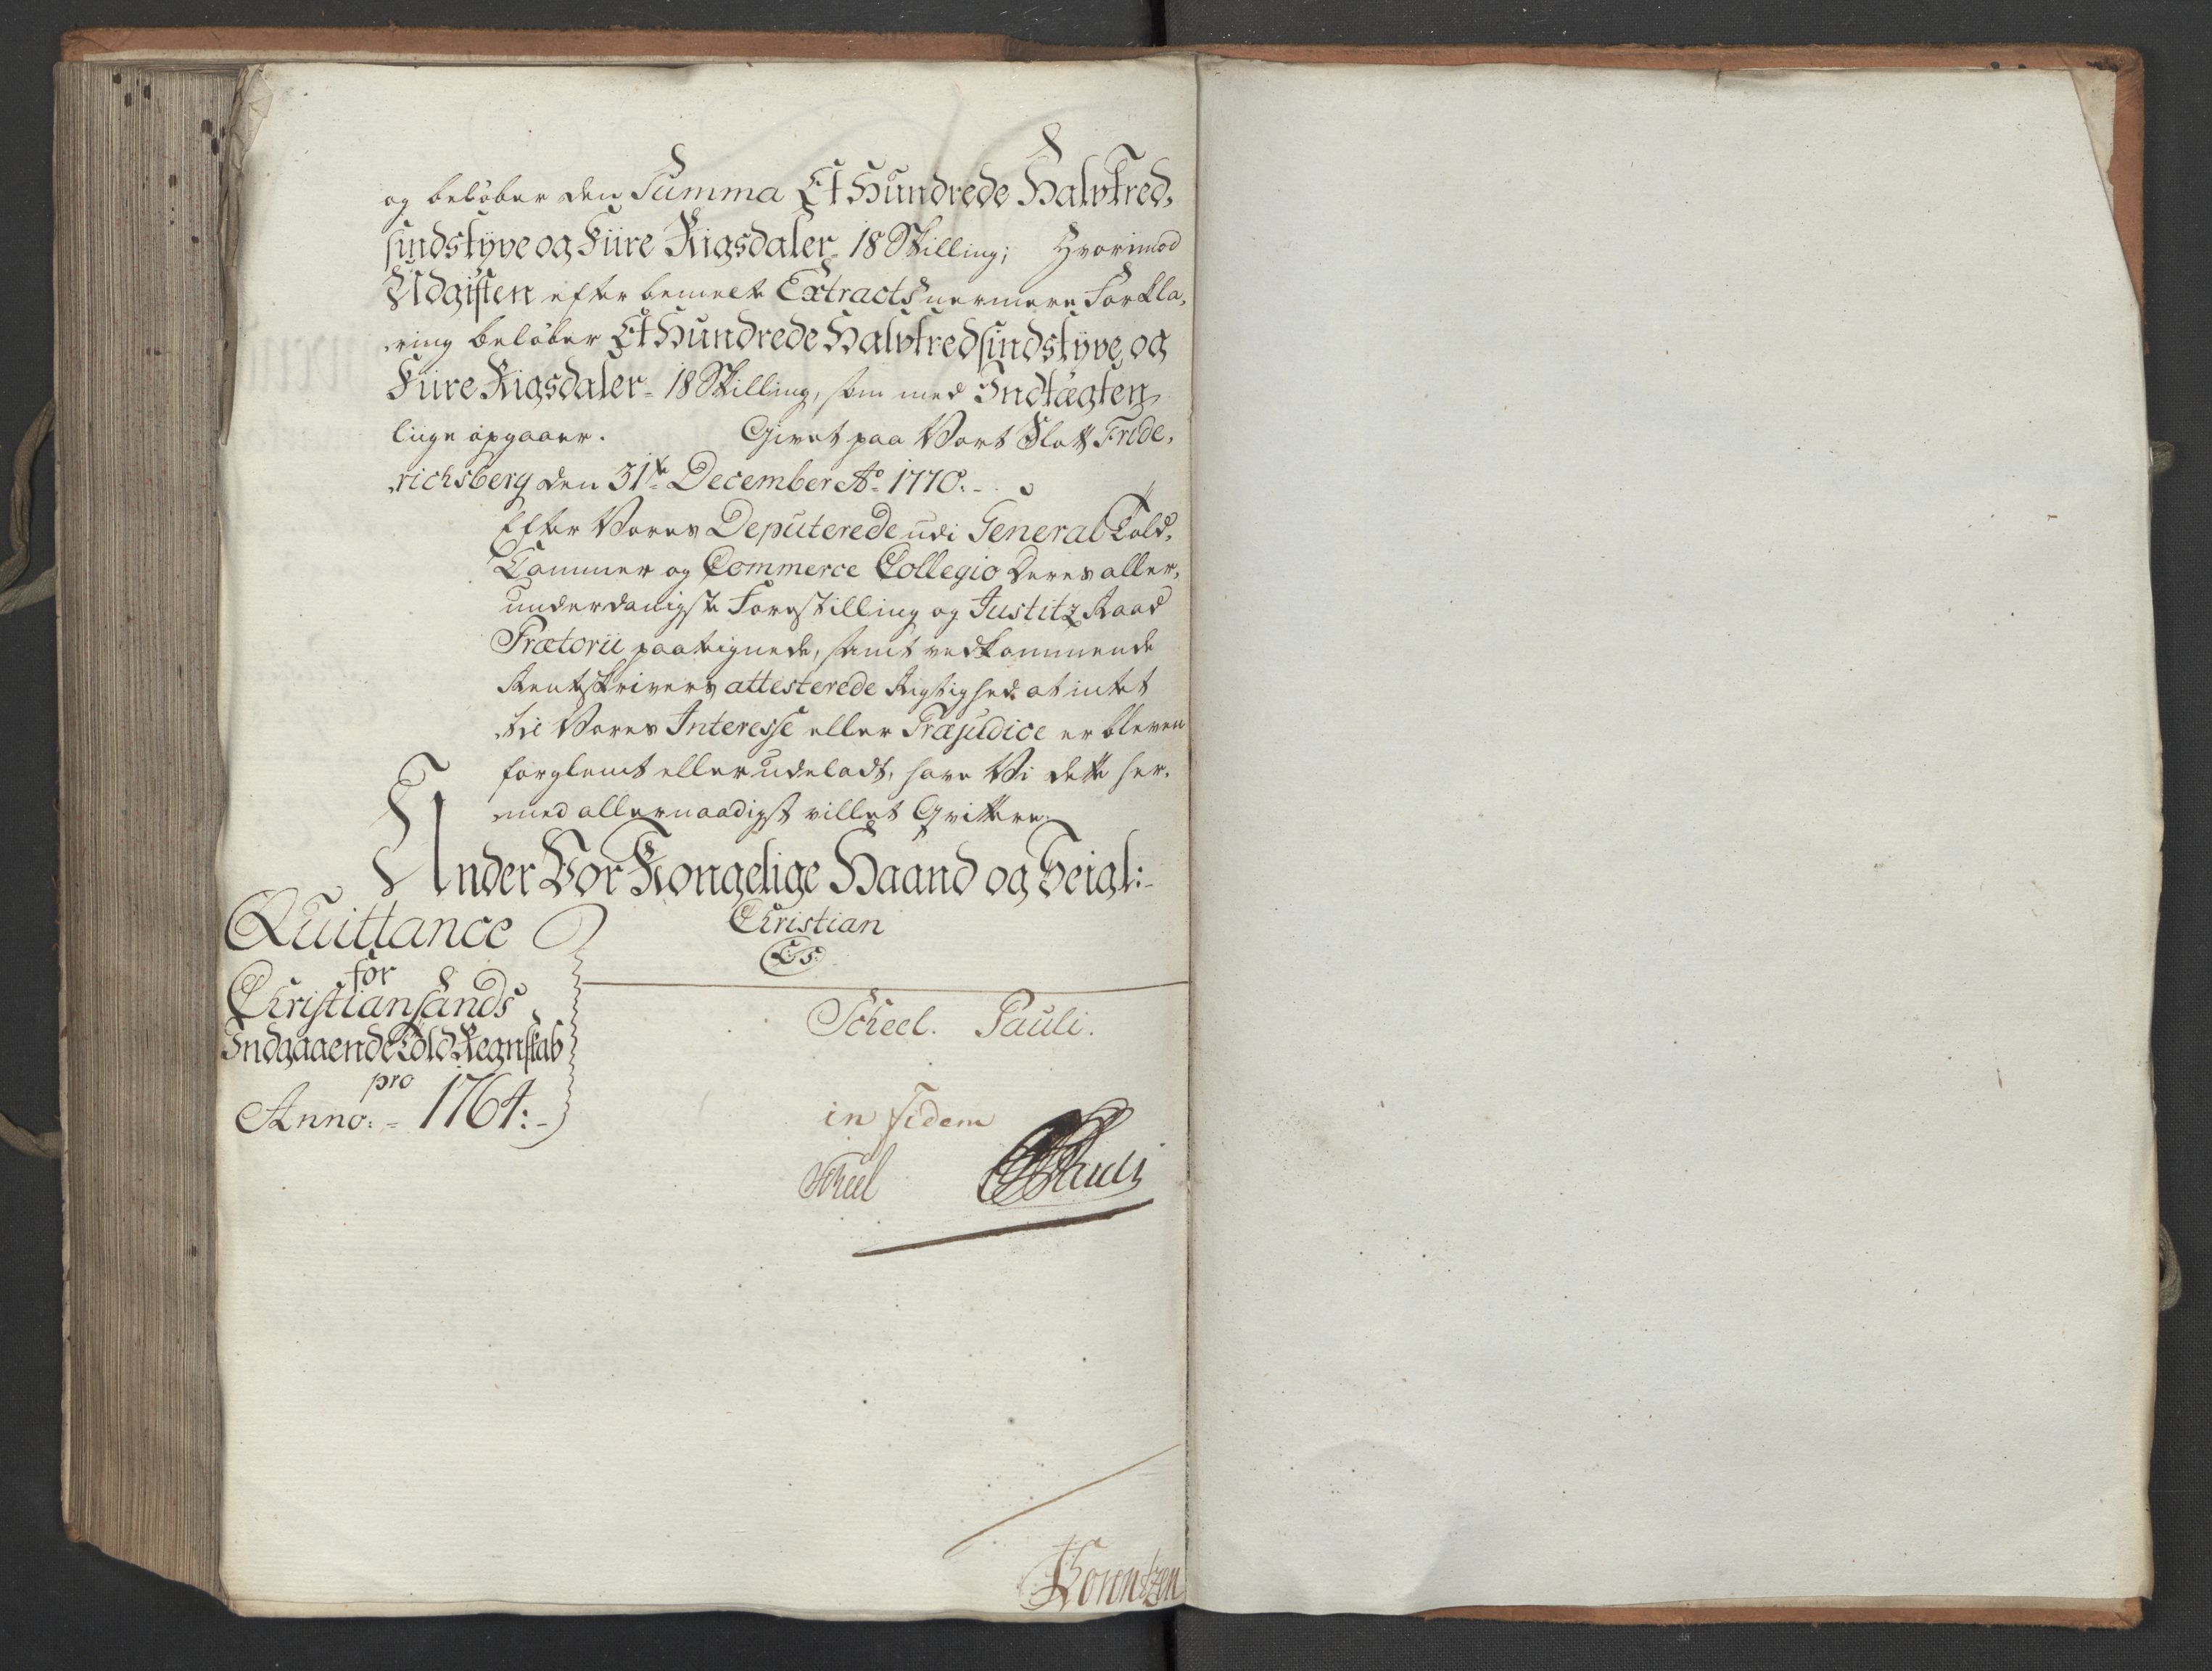 og beløber den Summa Et Hundrede Halvtred,
sindstyve og Fiire Rigsdaler 18 Skilling; Hvorimod
Udgiften efter bemelte Extracts nermere Forkla,
,ring beløber Et Hundrede Halvtredsindstyve og
Fiire Rigsdaler 18 Skilling, som med Indtægten
liige opgaaer. Givet paa Vort Slott Fride,
,richsberg den 31te December Ao 1770.
Efter Vores Deputerede udi General Told,
Kammer og Commerce Collegio Deres aller,
underdanigste Forestilling og Justitz Raad
Prætorii paategnede, samt vedkommende
Rentskrivers attesterede Rigtighed at intet
til Vores Interesse eller Præjudice er bleven
forglemt eller udeladt, have Vi dette her,
,med allernaadigst villet Qvittere.
Under Vor Kongelige Haand og Seigl:
Christian
LS.
Quittance
for
Christiansands
Indgaaende Told Regnskab
pro
Anno: 1764:
Scheel. Pauli.
in fidem
Scheel Pauli